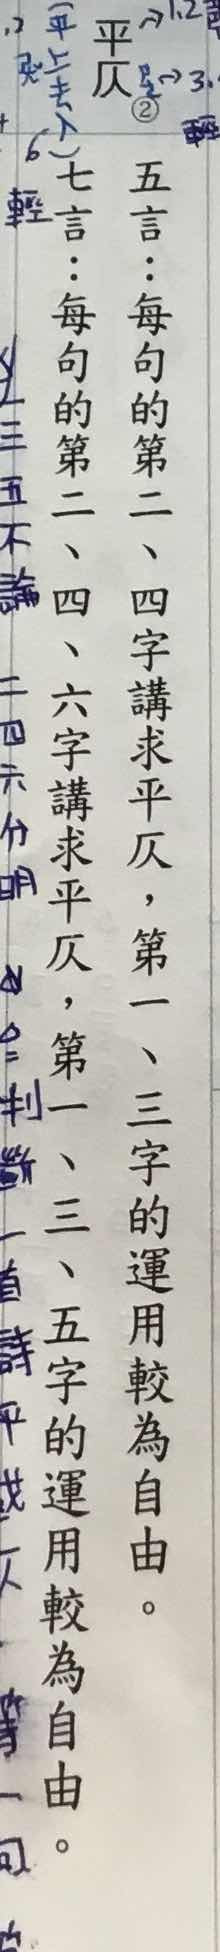 平仄②
五言：每句的第二、四字講求平仄，第一、三字的運用較為自由。
七言：每句的第二、四、六字講求平仄，第一、三、五字的運用較為自由。
平上去入
輕
輕
三五不論 二四六分明
判斷一首詩平或仄